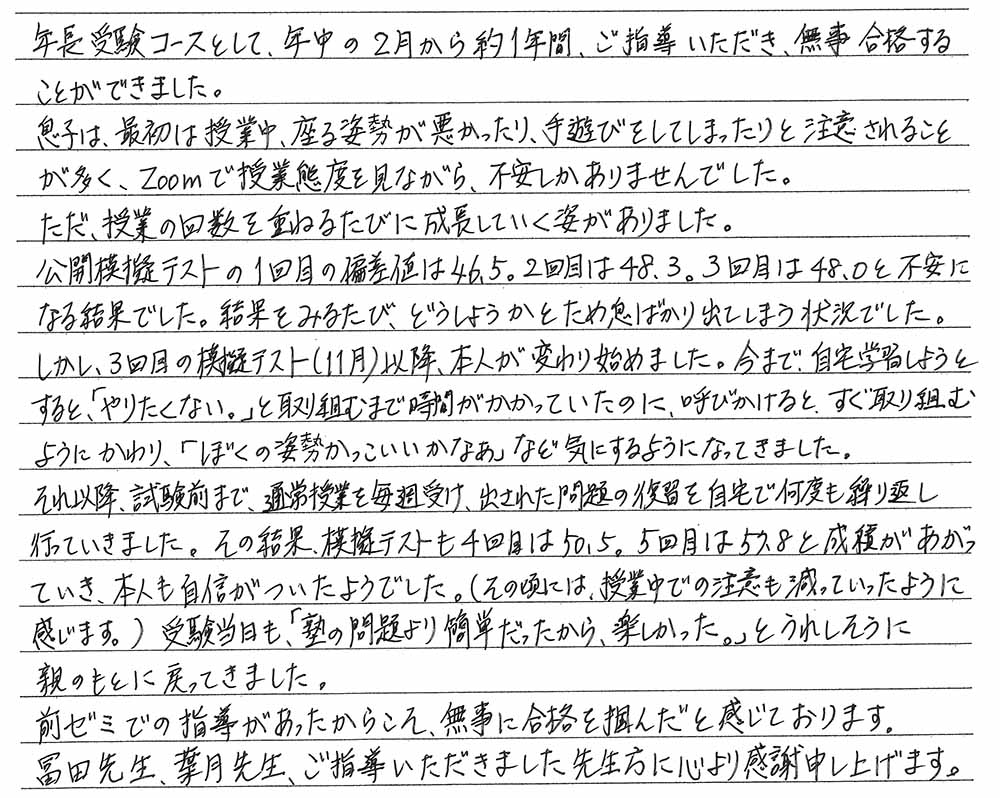 年長受験コースとして、年中の2月から約1年間、ご指導いただき、無事合格する
ことができました。
息子は、最初は授業中、座る姿勢が悪かったり、手遊びをしてしまったりと注意されること
が多く、Zoomで授業態度を見ながら、不安しかありませんでした。
ただ、授業の回数を重ねるたびに成長していく姿がありました。
公開模擬テストの1回目の偏差値は46.5。2回目は48.3。3回目は48.0と不安に
なる結果でした。結果をみるたび、どうしようかとため息ばかり出てしまう状況でした。
しかし、3回目の模擬テスト(11月)以降、本人が変わり始めました。今まで、自宅学習しようと
すると、「やりたくない。」と取り組むまで時間がかかっていたのに、呼びかけると、すぐ取り組む
ようにかわり、「ぼくの姿勢かっこいいかなあ」など気にするようになってきました。
それ以降、試験前まで、通常授業を毎週受け、出された問題の復習を自宅で何度も繰り返し
行っていきました。その結果、模擬テストも4回目は50.5。5回目は57.8と成積があがっ
ていき、本人も自信がついたようでした。(その頃には、授業中での注意も減っていったように
感じます。) 受験当日も、「塾の問題より簡単だったから、楽しかった。」とうれしそうに
親のもとに戻ってきました。
前ゼミでの指導があったからこそ、無事に合格を掴んだと感じております。
冨田先生、葉月先生、ご指導いただきました先生方に心より感謝申し上げます。